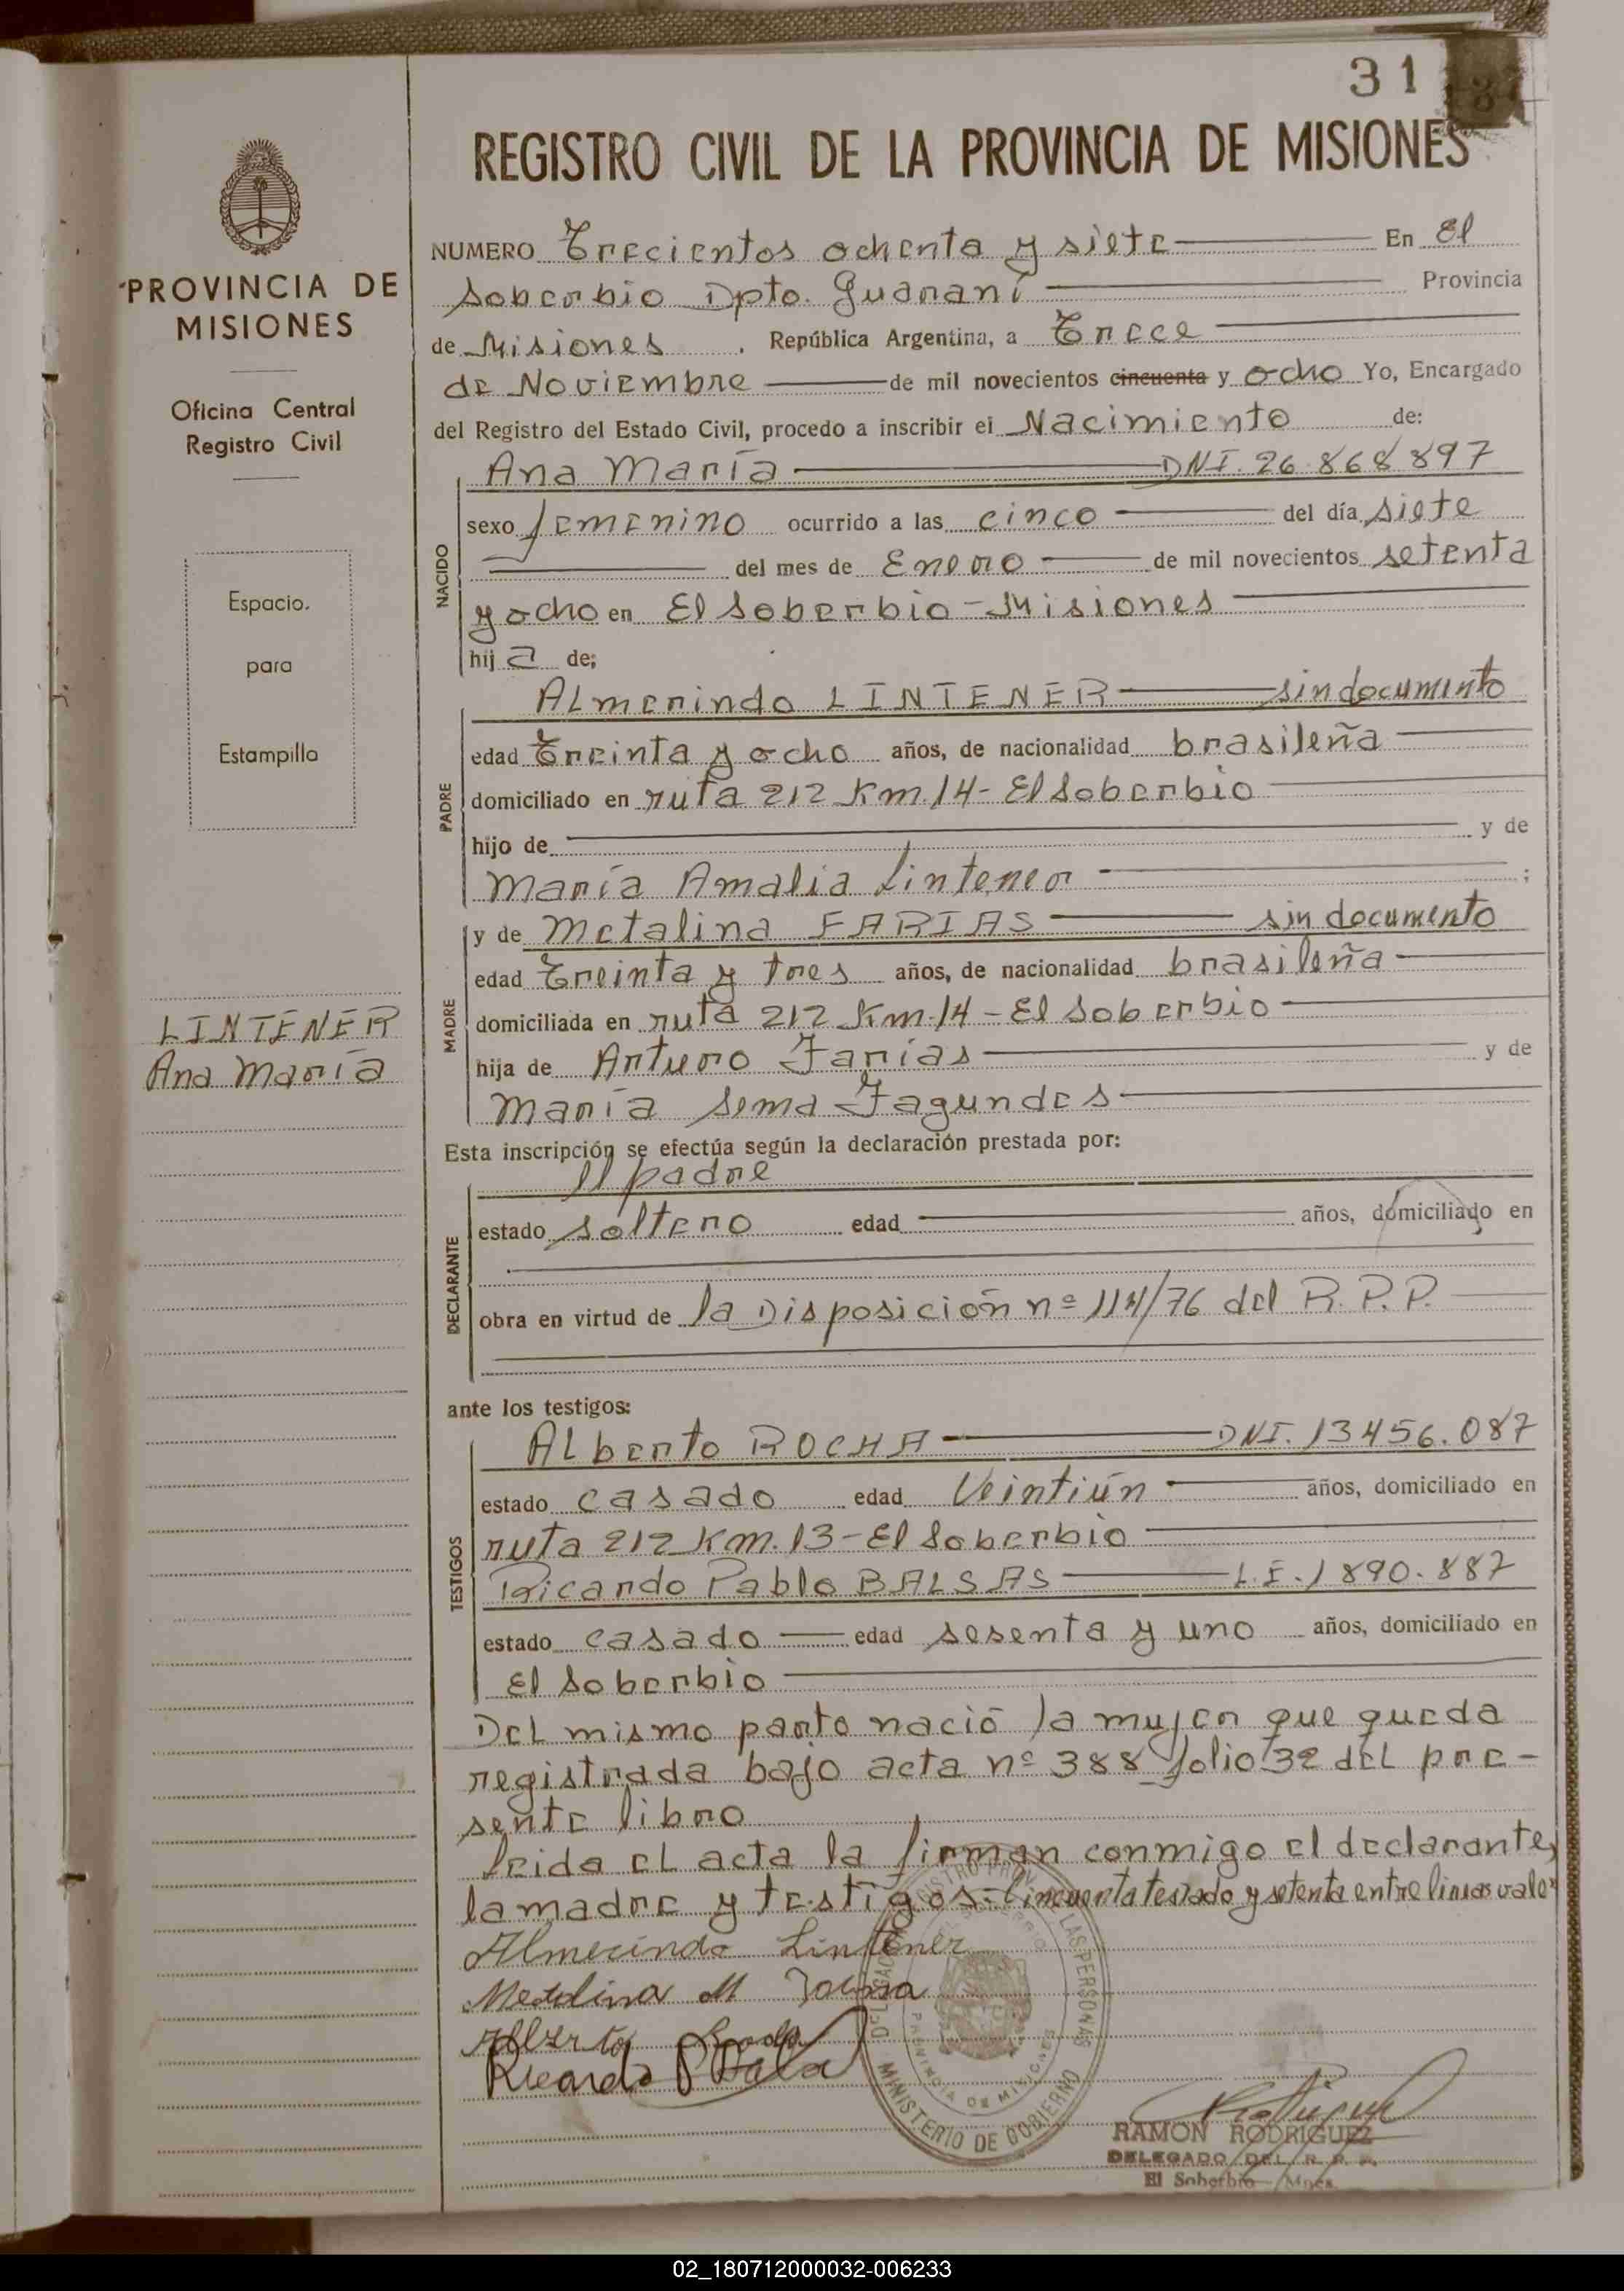 31
REGISTRO CIVIL DE LA PROVINCIA DE MISIONES
PROVINCIA DE
MISIONES
Oficina Central
Registro Civil
Espacio
para
Estampilla
LINTENER
Ana María
NUMERO Trecientos ochenta y siete En El
Soberbio Dpto. Guaraní Provincia
de Misiones . República Argentina, a Trece
de Noviembre de mil novecientos cincuenta y ocho Yo, Encargado
del Registro del Estado Civil, procedo a inscribir el Nacimiento de:
NACIDO
Ana María DNI. 26.868.897
sexo femenino ocurrido a las cinco del día siete
del mes de Enero de mil novecientos setenta
y ocho en El Soberbio - Misiones
hij a de;
PADRE
Almerindo LINTENER sin documento
edad Treinta y ocho años, de nacionalidad brasileña
domiciliado en ruta 212 Km. 14 - El Soberbio
hijo de y de
María Amalia Lintener ;
MADRE
y de Metalina FARIAS sin documento
edad Treinta y tres años, de nacionalidad brasileña
domiciliada en ruta 212 Km. 14 - El Soberbio
hija de Arturo Farías y de
María Sema Fagundes
Esta inscripción se efectúa según la declaración prestada por:
DECLARANTE
El padre
estado soltero edad años, domiciliado en
obra en virtud de la Disposición nº 114/76 del R.P.P.
ante los testigos:
TESTIGOS
Alberto ROCHA DNI. 13456.087
estado casado edad Veintiún años, domiciliado en
ruta 212 Km. 13 - El Soberbio
Ricardo Pablo BALSAS L.E. 1890.887
estado casado edad sesenta y uno años, domiciliado en
El Soberbio
Del mismo parto nació la mujer que queda
registrada bajo acta nº 388 folio 32 del pre-
sente libro
leida el acta la firman conmigo el declarante,
la madre y testigos.- Cincuenta testado y setenta entre lineas vale
Almerindo Lintener
Metalina M
Alberto
Ricardo P
LAS PERSONAS
PROVINCIA DE MISIONES
MINISTERIO DE GOBIERNO
RAMON RODRIGUEZ
DELEGADO DEL R. P. P.
El Soberbio - Mnes.
02_180712000032-006233